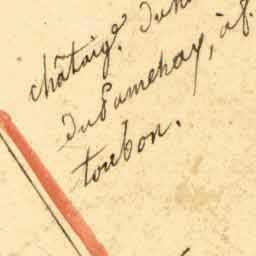 châtaig.e dun
du Pamehay, à f.
toubon.